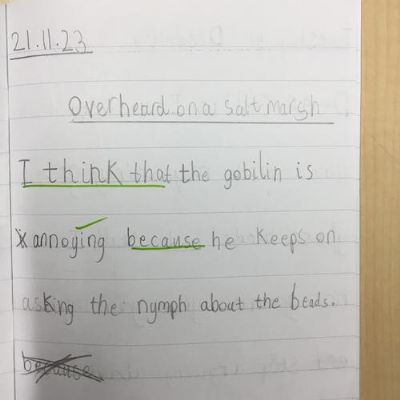 21.11.23
Overheard on a salt marsh
I think that the gobilin is
annoying because he keeps on
asking the nymph about the beads.
because